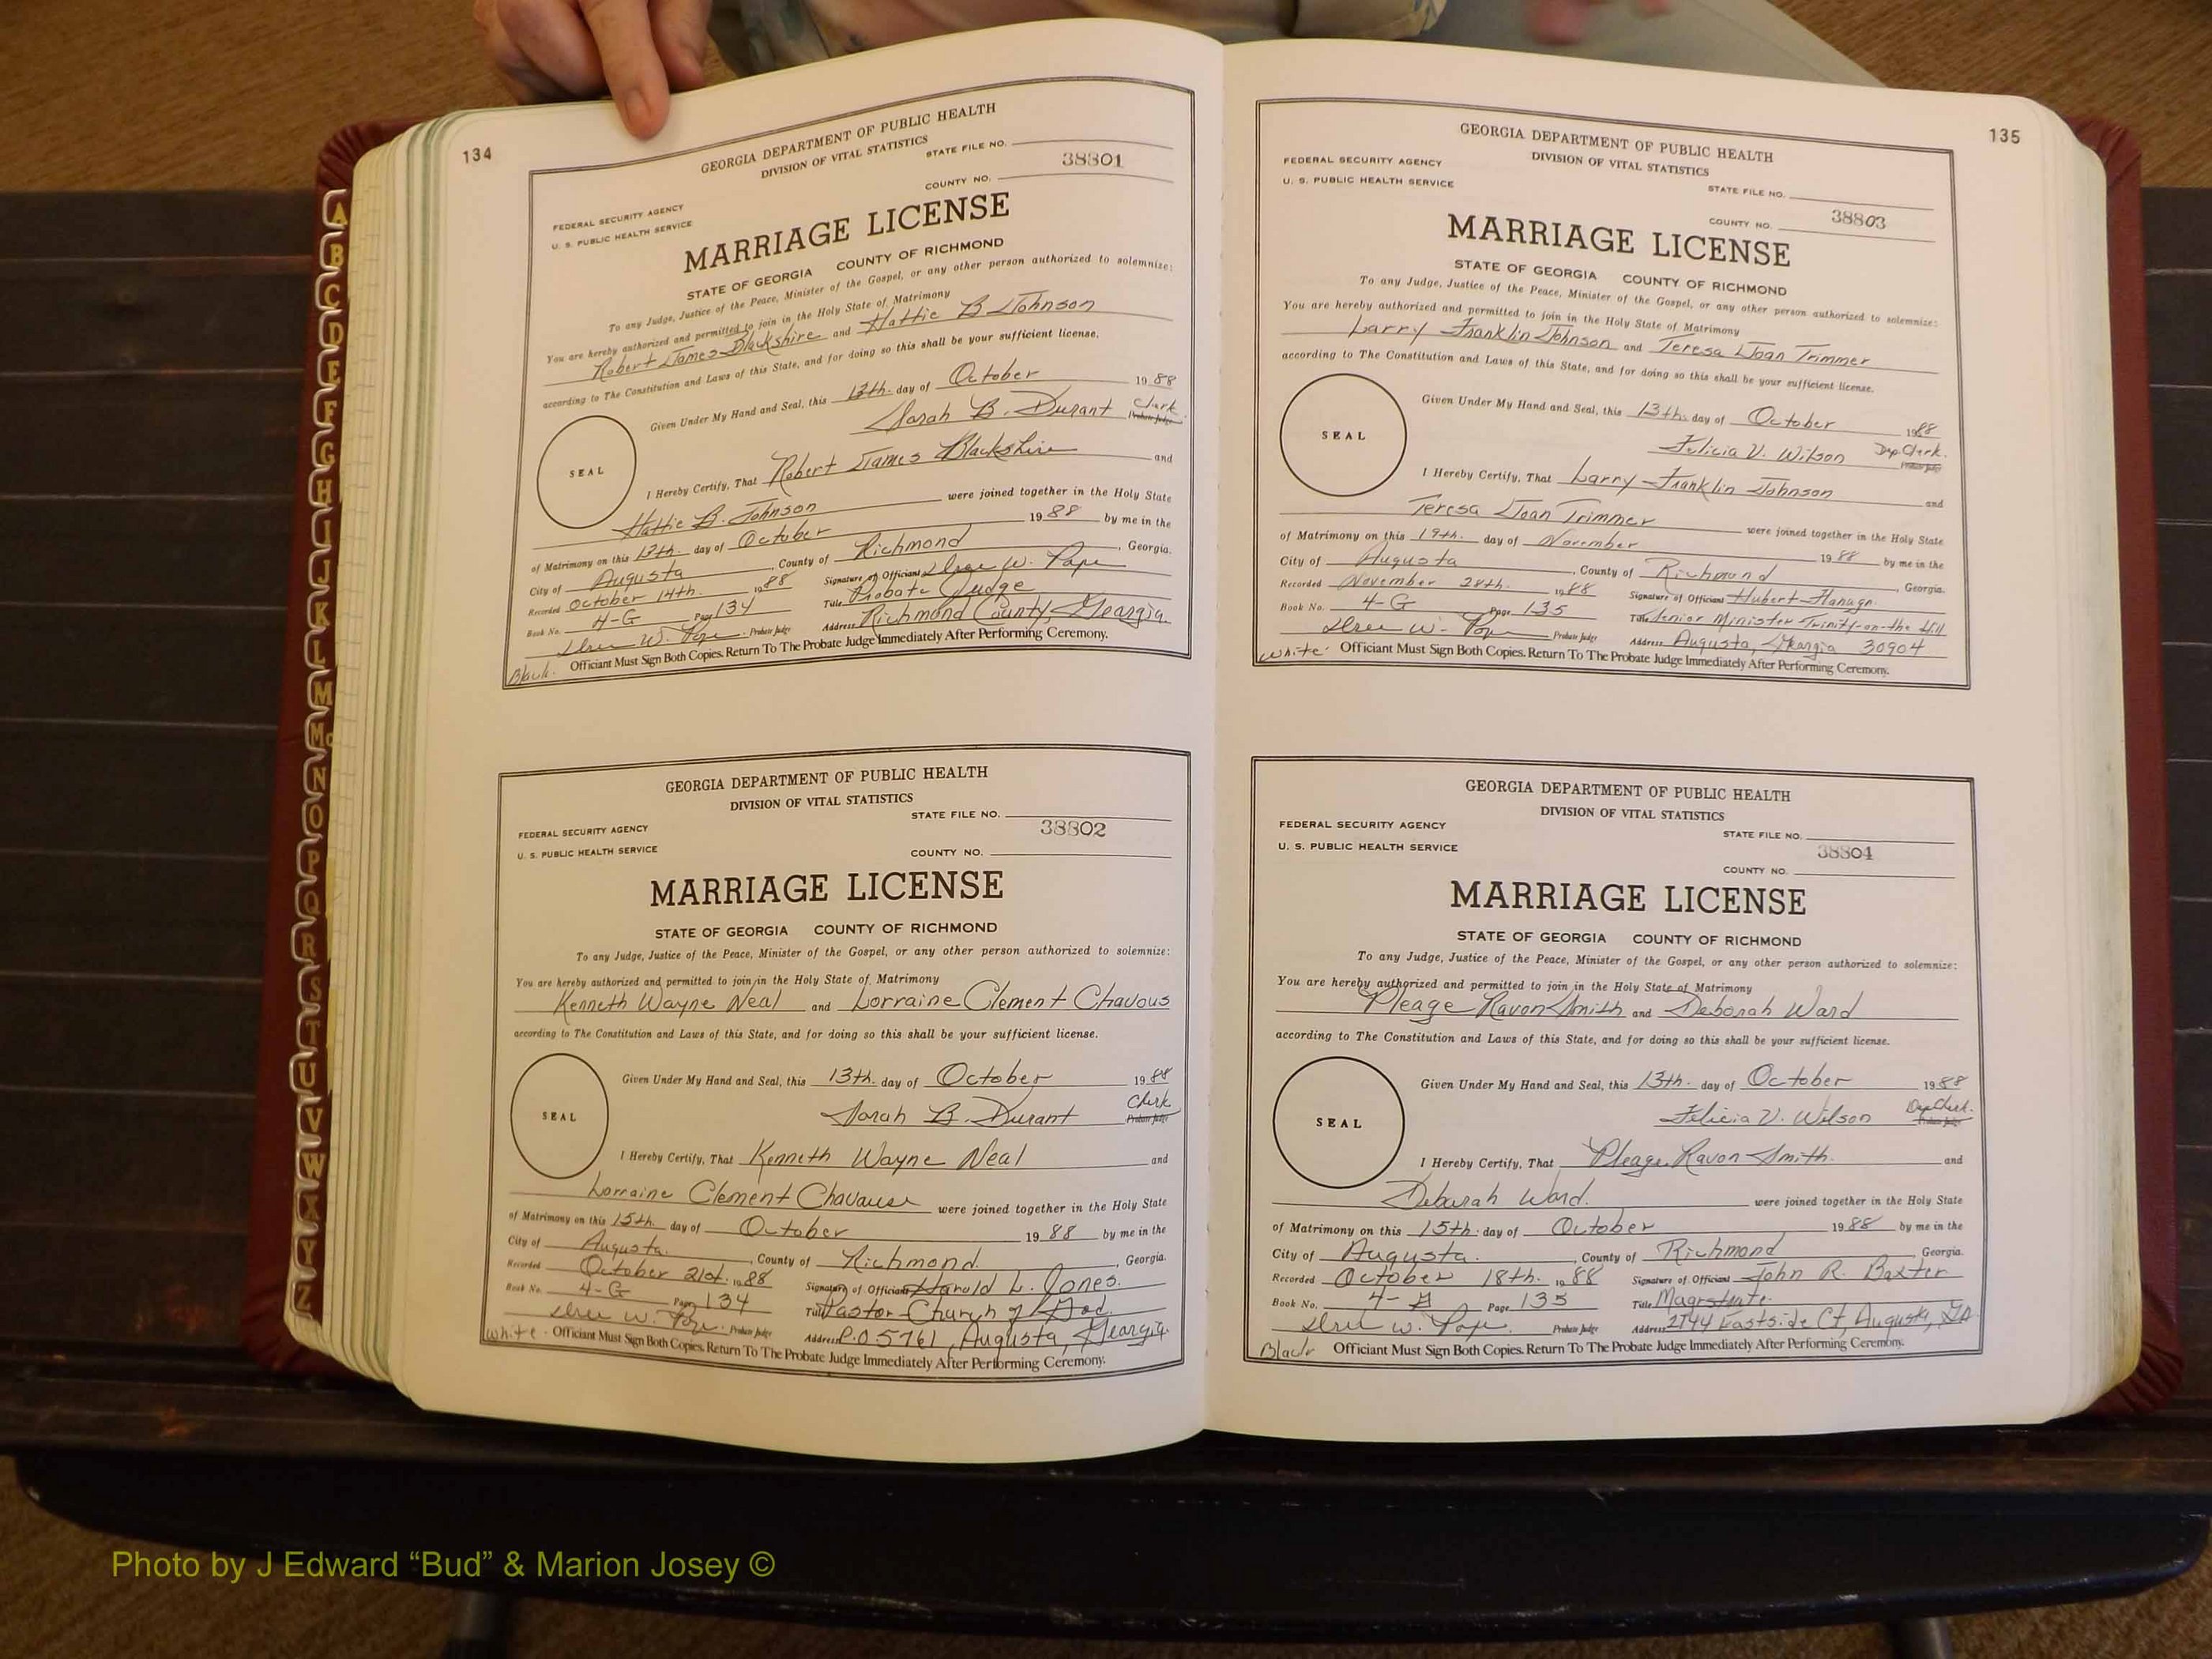 134
GEORGIA DEPARTMENT OF PUBLIC HEALTH
DIVISION OF VITAL STATISTICS
STATE FILE NO.
38801
COUNTY NO.
FEDERAL SECURITY AGENCY
U. S. PUBLIC HEALTH SERVICE
MARRIAGE LICENSE
STATE OF GEORGIA COUNTY OF RICHMOND
To any Judge, Justice of the Peace, Minister of the Gospel, or any other person authorized to solemnize:
You are hereby authorized and permitted to join in the Holy State of Matrimony
Robert James Blackshire and Hattie B Johnson
according to The Constitution and Laws of this State, and for doing so this shall be your sufficient license.
Given Under My Hand and Seal, this 13th. day of October 19 88
Sarah B. Durant Clerk
Probate Judge
SEAL
I Hereby Certify, That Robert James Blackshire and
Hattie B. Johnson were joined together in the Holy State
of Matrimony on this 13th. day of October 19 88 by me in the
City of Augusta, County of Richmond, Georgia.
Recorded October 14th. 19 88 Signature of Officiant W. Pope
Book No. 4-G Page 134 Title Probate Judge
W. Pope Probate Judge Address Richmond County, Georgia
Black. Officiant Must Sign Both Copies. Return To The Probate Judge Immediately After Performing Ceremony.
GEORGIA DEPARTMENT OF PUBLIC HEALTH
DIVISION OF VITAL STATISTICS
STATE FILE NO.
38802
FEDERAL SECURITY AGENCY
U. S. PUBLIC HEALTH SERVICE
COUNTY NO.
MARRIAGE LICENSE
STATE OF GEORGIA COUNTY OF RICHMOND
To any Judge, Justice of the Peace, Minister of the Gospel, or any other person authorized to solemnize:
You are hereby authorized and permitted to join in the Holy State of Matrimony
Kenneth Wayne Neal and Lorraine Clement Chavous
according to The Constitution and Laws of this State, and for doing so this shall be your sufficient license.
Given Under My Hand and Seal, this 13th. day of October 19 88
Sarah B. Durant Clerk
Probate Judge
SEAL
I Hereby Certify, That Kenneth Wayne Neal and
Lorraine Clement were joined together in the Holy State
of Matrimony on this 15th. day of October 19 88 by me in the
City of Augusta. , County of Richmond. , Georgia.
Recorded October 21st. 19 88 Signature of Officiant Harold L. Jones.
Book No. 4-G Page 134 Title Pastor Church of God.
W. Pope. Probate Judge Address P.O 5761, Augusta, Georgia
White. Officiant Must Sign Both Copies. Return To The Probate Judge Immediately After Performing Ceremony.
135
GEORGIA DEPARTMENT OF PUBLIC HEALTH
DIVISION OF VITAL STATISTICS
FEDERAL SECURITY AGENCY
U. S. PUBLIC HEALTH SERVICE
STATE FILE NO.
38803
COUNTY NO.
MARRIAGE LICENSE
STATE OF GEORGIA COUNTY OF RICHMOND
To any Judge, Justice of the Peace, Minister of the Gospel, or any other person authorized to solemnize:
You are hereby authorized and permitted to join in the Holy State of Matrimony
Larry Franklin Johnson and Teresa Joan Trimmer
according to The Constitution and Laws of this State, and for doing so this shall be your sufficient license.
Given Under My Hand and Seal, this 13th. day of October 1988
Felicia V. Wilson Dep. Clerk.
Probate Judge
SEAL
I Hereby Certify, That Larry Franklin Johnson and
Teresa Joan Trimmer were joined together in the Holy State
of Matrimony on this 19th. day of November 19 88 by me in the
City of Augusta, County of Richmond, Georgia.
Recorded November 28th. 19 88 Signature of Officiant Hubert
Book No. 4-G Page 135 Title Senior Minister Trinity-on-the Hill
W. Pope Probate Judge Address Augusta, Georgia 30904
White. Officiant Must Sign Both Copies. Return To The Probate Judge Immediately After Performing Ceremony.
GEORGIA DEPARTMENT OF PUBLIC HEALTH
DIVISION OF VITAL STATISTICS
FEDERAL SECURITY AGENCY
U. S. PUBLIC HEALTH SERVICE
STATE FILE NO.
38804
COUNTY NO.
MARRIAGE LICENSE
STATE OF GEORGIA COUNTY OF RICHMOND
To any Judge, Justice of the Peace, Minister of the Gospel, or any other person authorized to solemnize:
You are hereby authorized and permitted to join in the Holy State of Matrimony
Pleage Ravon Smith and Deborah Ward
according to The Constitution and Laws of this State, and for doing so this shall be your sufficient license.
Given Under My Hand and Seal, this 13th. day of October 19 88
Felicia V. Wilson Dep Clerk.
Probate Judge
SEAL
I Hereby Certify, That Pleage Ravon Smith. and
Deborah Ward. were joined together in the Holy State
of Matrimony on this 15th. day of October 19 88 by me in the
City of Augusta. , County of Richmond , Georgia.
Recorded October 18th. 19 88 Signature of Officiant John R. Baxter
Book No. 4-G Page 135 Title Magistrate.
W. Pope. Probate Judge Address Eastside Ct, Augusta, GA
Black Officiant Must Sign Both Copies. Return To The Probate Judge Immediately After Performing Ceremony.
A
B
C
D
E
F
G
H
I
J
K
L
M
Mc
N
O
P
Q
R
S
T
U
V
W
X
Y
Z
Photo by J Edward “Bud” & Marion Josey ©